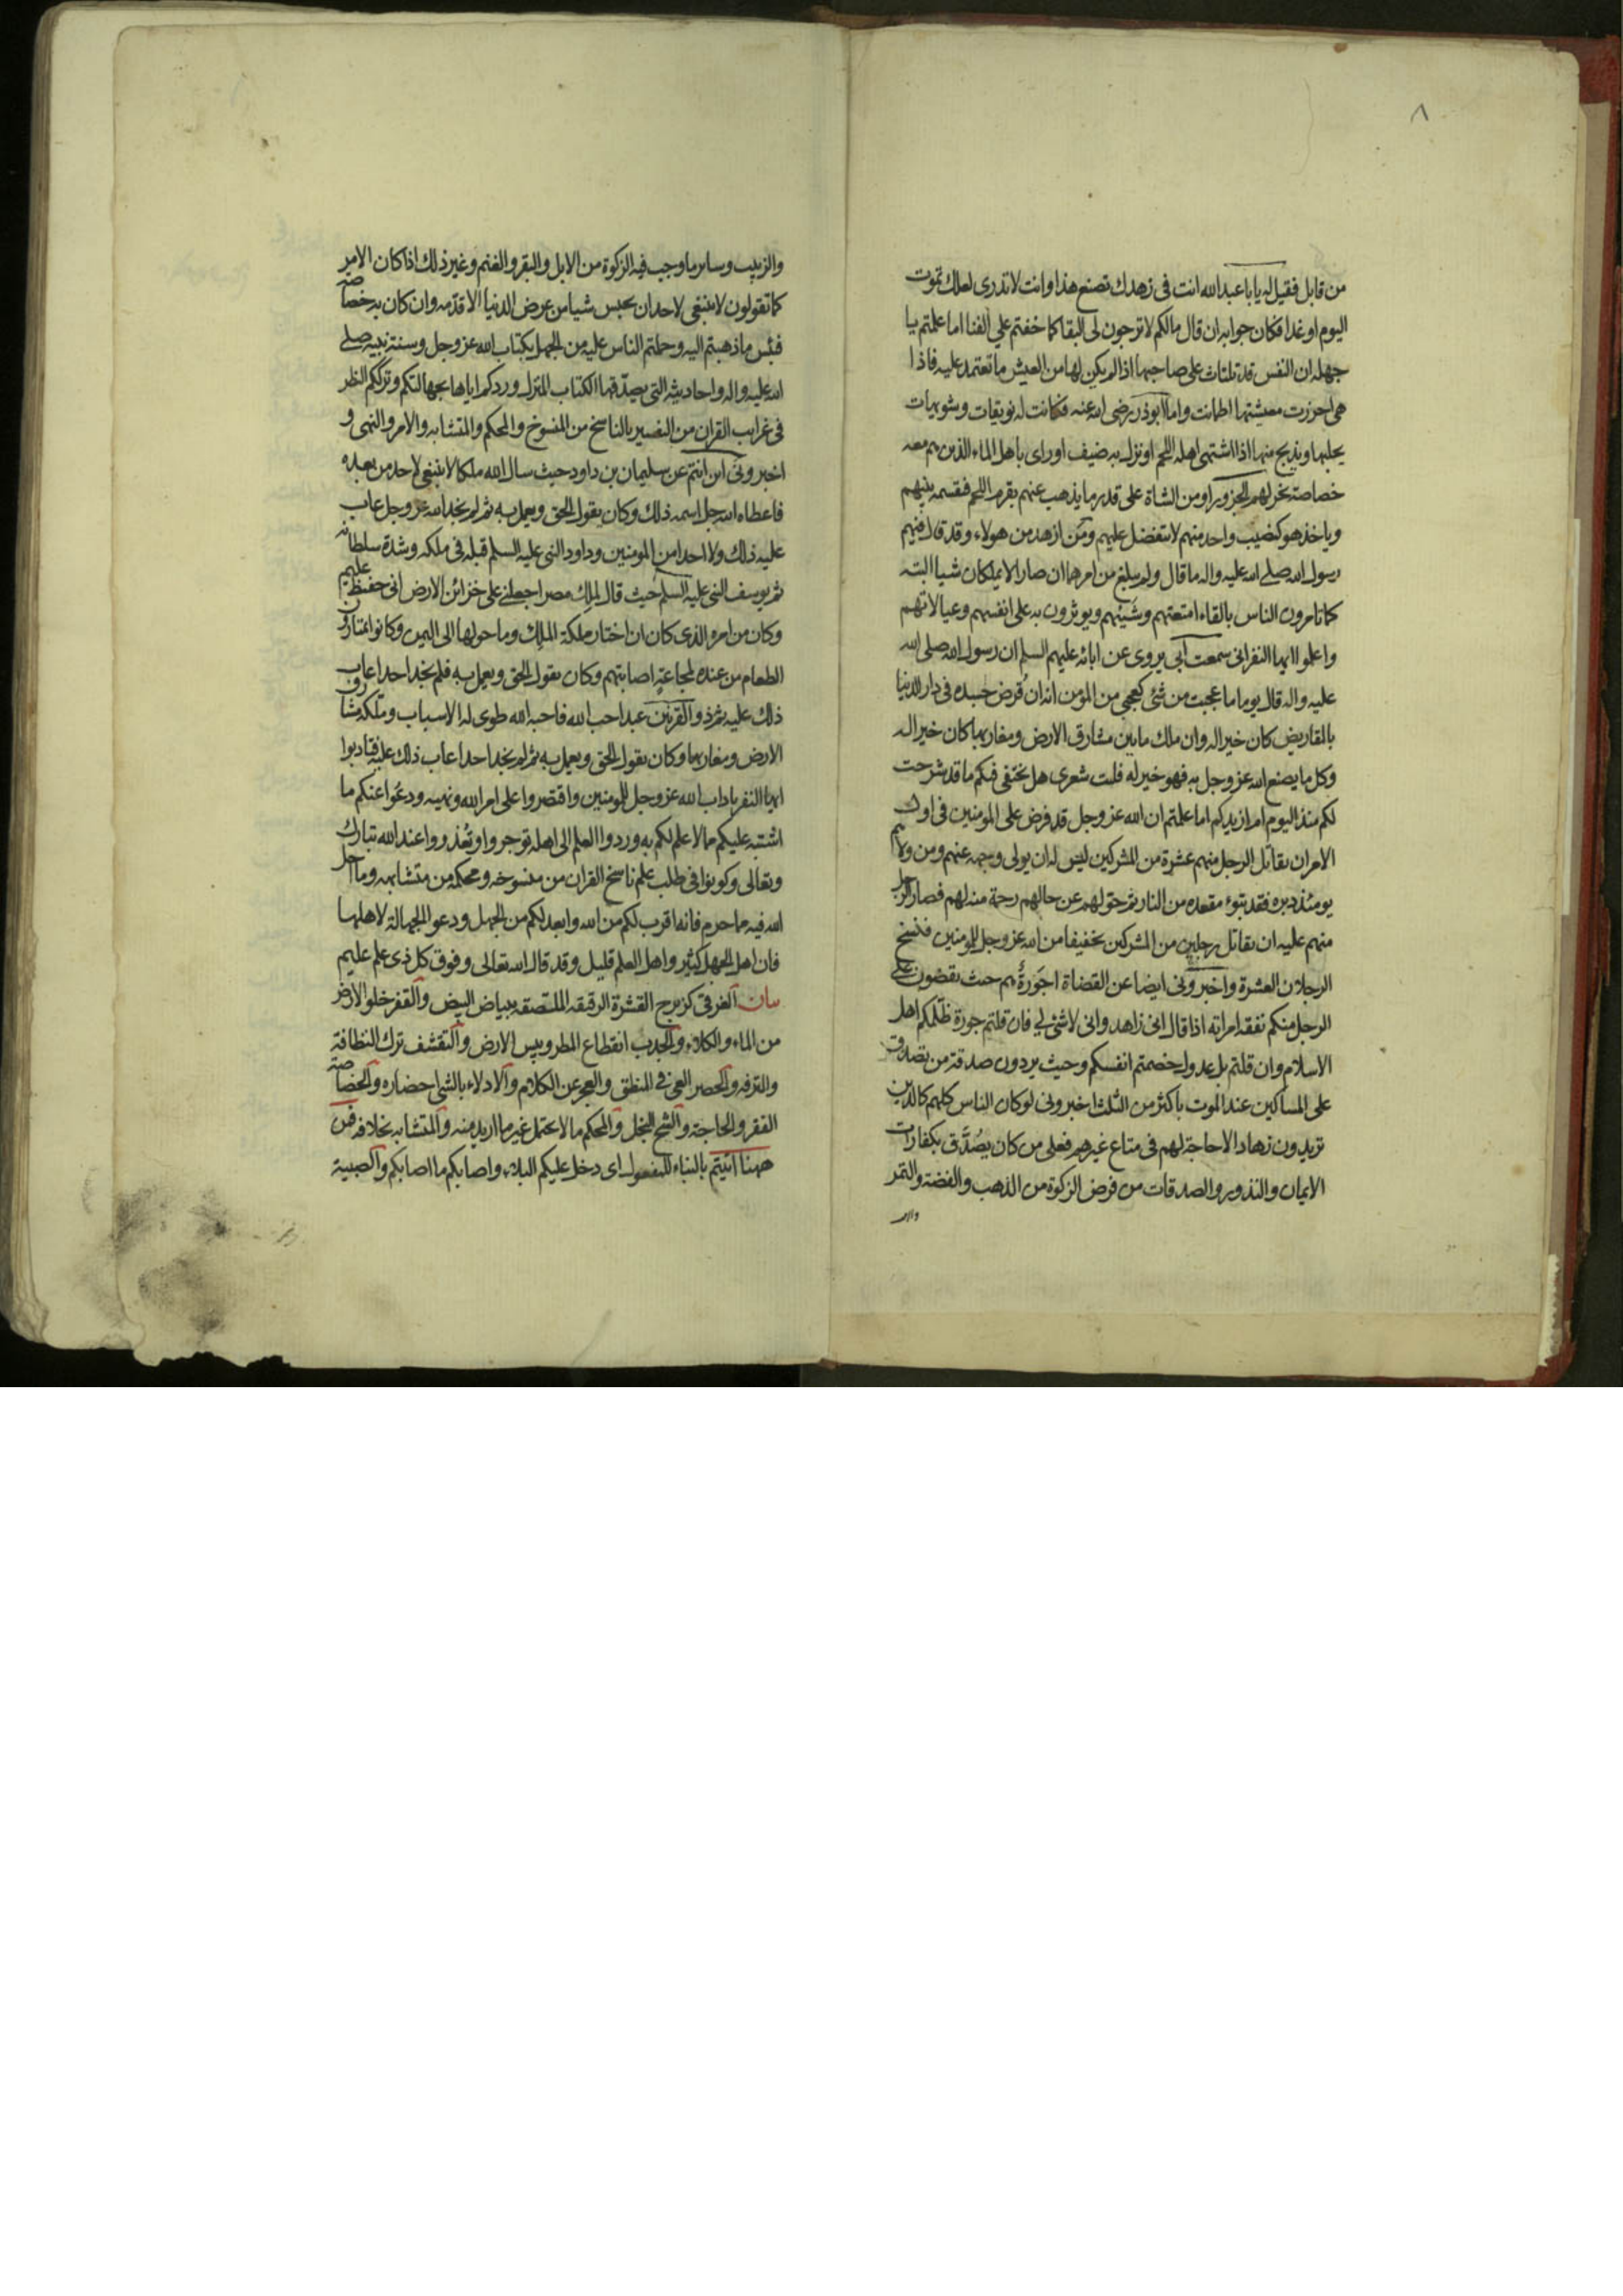 ٨
من قابل فقيل له يا با عبد الله انت فى زهدك تصنع هذا وانت لا تدرى لعلك تموت
اليوم او غدا فكان جوابه ان قال مالكم لا ترجون لى البقا كما خفتم على الفنا اما علمتم يا
جهله ان النفس قد تلتاث على صاحبها اذا لم يكن لها من العيش ما تعتمد عليه فاذا
هى احرزت معيشتها اطمانت واما ابوذر رضى الله عنه فكانت له نويقات وشويهات
يحلبها ويذبح منها اذا اشتهى اهله اللحم او نزل به ضيف او راى باهل الماء الذين هم معه
خصاصة نحر لهم الجزور او من الشاة على قدر ما يذهب عنهم بقرم اللحم فقسمه بينهم
وياخذ هو كنصيب واحد منهم لا يتفضل عليهم ومن ازهد من هولاء وقد قال فيهم
رسول الله صلى الله عليه واله ما قال ولم يبلغ من امرهما ان صارا لا يملكان شيا البتة
كما تامرون الناس بالقاء امتعتهم وشيئهم ويوثرون به على انفسهم وعيالاتهم
واعلموا ايها النفر انى سمعت ابى يروى عن ابائه عليهم السلم ان رسول الله صلى الله
عليه واله قال يوما ما عجبت من شئ كعجبى من المومن انه ان قرض جسده فى دار الدنيا
بالمقاريض كان خيرا له وان ملك ما بين مشارق الارض ومغاربها كان خيرا له
وكل ما يصنع الله عز وجل به فهو خير له فليت شعرى هل يختفى فيكم ما قد شرحت
لكم منذ اليوم ام ازيدكم اما علمتم ان الله عز وجل قد فرض على المومنين فى اول
الامر ان يقاتل الرجل منهم عشرة من المشركين ليس له ان يولى وجهه عنهم ومن ولاهم
يومئذ دبره فقد تبوء مقعده من النار ثم حولهم عن حالهم رحمة منه لهم فصار الرجل
منهم عليه ان يقاتل رجلين من المشركين تخفيفا من الله عز وجل للمومنين فنسخ
الرجلان العشرة واخبرونى ايضا عن القضاة اجَوَرةٌ هم حيث يقضون على
الرجل منكم نفقه امراته اذا قال انى زاهد وانى لا شئ لى فان قلتم جورة ظلمكم اهل
الاسلام وان قلتم بل عدول خصمتم انفسكم وحيث يردون صدقة من تصدق
على المساكين عند الموت باكثر من الثلث اخبرونى لو كان الناس كلهم كالذين
تريدون زهادا لا حاجة لهم فى متاع غيرهم فعلى من كان يصُدَّق بكفارات
الايمان والنذور والصدقات من فرض الزكوة من الذهب والفضة والتمر
والزبيب وساير ما وجب فيه الزكوة من الابل والبقر والغنم وغير ذلك اذا كان الامر
كما تقولون لا ينبغى لاحد ان يحبس شيا من عرض الدنيا الا قدّمه وان كان به خصاصة
فبئس ما ذهبتم اليه وحملتم الناس عليه من الجهل بكتاب الله عز وجل وسنة نبيه صلى
الله عليه واله واحاديثه التى يصدّقها الكتاب المنزل وردكم اياها بجهالتكم وترككم النظر
فى غرايب القران من التفسير بالناسخ من المنسوخ والمحكم والمتشابه والامر والنهى و
اخبرونى اين انتم عن سليمان بن داود حيث سال الله ملكا لا ينبغى لاحد من بعده
فاعطاه الله جل اسمه ذلك وكان يقول الحق ويعمل به ثم لم نجد الله عز وجل عاب
عليه ذلك ولا احدا من المومنين وداود النبى عليه السلم قبله فى ملكه وشدة سلطانه
ثم يوسف النبى عليه السلم حيث قال لملك مصر اجعلنى على خزائن الارض انى حفيظ عليم
وكان من امره الذى كان ان اختار مملكة الملك وما حولها الى اليمن وكانوا يمتارون
الطعام من عنده لمجاعة اصابتهم وكان يقول الحق ويعمل به فلم نجد احدا عاب
ذلك عليه ثم ذو القرنين عبد احب الله فاحبه الله طوى له الاسباب وملكه مشارق
الارض ومغاربها وكان يقول الحق ويعمل به ثم لم نجد احدا عاب ذلك عليه فتادبوا
ايها النفر باداب الله عز وجل للمومنين واقتصروا على امر الله ونهيه ودعوا عنكم ما
اشتبه عليكم مما لا علم لكم به وردوا العلم الى اهله توجروا وتعذروا عند الله تبارك
وتعالى وكونوا فى طلب علم ناسخ القران من منسوخه ومحكمه من متشابهه وما احل
الله فيه مما حرم فانه اقرب لكم من الله وابعد لكم من الجهل ودعوا الجهالة لاهلها
فان اهل الجهل كثير واهل العلم قليل وقد قال الله تعالى وفوق كل ذى علم عليم
بيان الغرقئ كزبرج القشرة الرقيقه الملتصقة ببياض البيض والقفر خلو الارض
من الماء والكلاء والجدب انقطاع المطر ويبس الارض والتقشف ترك النظافة
والترفه والحصر العى فى المنطق والعجز عن الكلام والادلاء بالشى احضاره والخصاصة
الفقر والحاجة والشح البخل والمحكم ما لا يحتمل غير ما اريد منه والمتشابه بخلافه من
ههنا اتيتم بالبناء للمفعول اى دخل عليكم البلاء واصابكم ما اصابكم والصبية